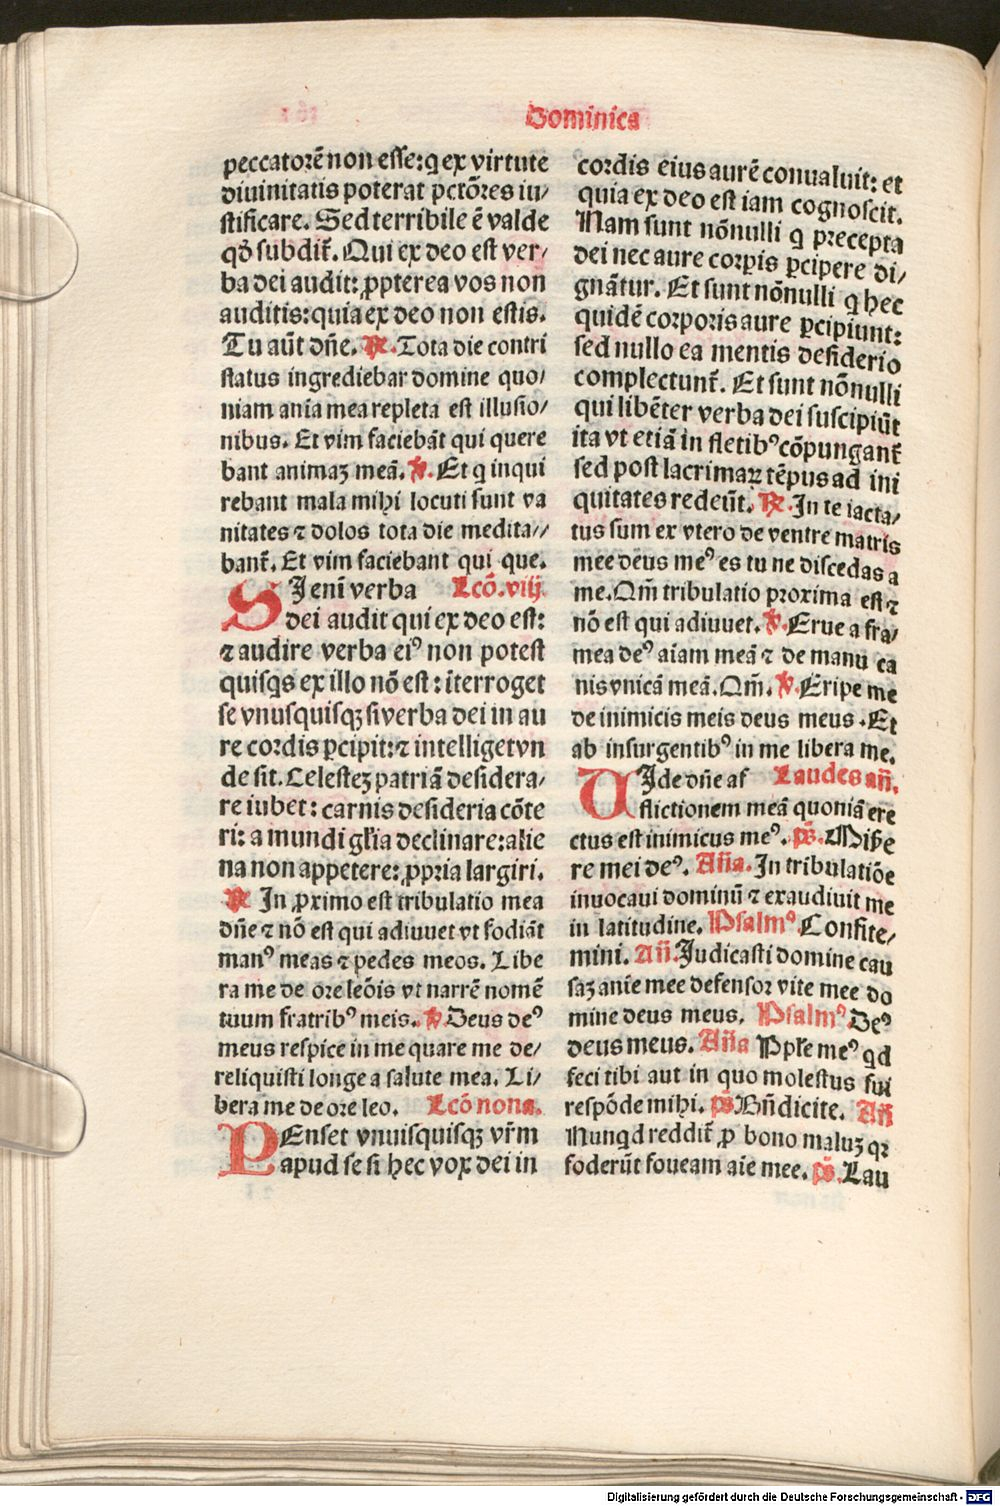 Dominica
peccatorē non esse: q ex virtute
diuinitatis poterat pctōres iu/
stificare. Sed terribile ē valde
qď subdit̄. Qui ex deo est ver/
ba dei audit: ꝓpterea vos non
auditis: quia ex deo non estis.
Tu aūt dn̄e. ℟. Tota die contri
status ingrediebar domine quo/
niam anīa mea repleta est illusio/
nibus. Et vim faciebāt qui quere
bant animaꝫ meā. ℣. Et q inqui
rebant mala mihi locuti sunt va
nitates ⁊ dolos tota die medita//
bant̄. Et vim faciebant qui que.
SI enī verba Lcō. viij.
dei audit qui ex deo est:
⁊ audire verba eiꝰ non potest
quisq̄s ex illo nō est: īterroget
se vnusquisqꝫ si verba dei in au
re cordis ꝑcipit: ⁊ intelliget vn
de sit. Celesteꝫ patriā desidera/
re iubet: carnis desideria cōte
ri: a mundi gl̄ia declinare: alie
na non appetere: ꝓpria largiri.
℟ In ꝓximo est tribulatio mea
dn̄e ⁊ nō est qui adiuuet vt fodiāt
manꝰ meas ⁊ pedes meos. Libe
ra me de ore leōis vt narrē nomē
tuum fratribꝰ meis. ℣. Deus deꝰ
meus respice in me quare me de/
reliquisti longe a salute mea. Li/
bera me de ore leo. Lcō nona.
PEnset vnuisquisqꝫ vr̄m
apud se si hec vox dei in
cordis eius aurē conualuit: et
quia ex deo est iam cognoscit.
Nam sunt nōnulli q precepta
dei nec aure corꝑis ꝑcipere di/
gnātur. Et sunt nōnulli q hec
quidē corporis aure ꝑcipiunt:
sed nullo ea mentis desiderio
complectunt̄. Et sunt nōnulli
qui libēter verba dei suscipiūt
ita vt etiā in fletibꝰ cōpungant̄
sed post lacrimaꝝ tēpus ad ini
quitates redeūt. ℟. In te iacta/
tus sum ex vtero de ventre matris
mee deus meꝰ es tu ne discedas a
me. Qm̄ tribulatio proxima est ⁊
nō est qui adiuuet. ℣. Erue a fra/
mea deꝰ aīam meā ⁊ de manu ca
nis vnicā meā. Qm̄. ℣. Eripe me
de inimicis meis deus meus. Et
ab insurgentibꝰ in me libera me.
VIde dn̄e af Laudes an̄.
flictionem meā quoniā ere
ctus est inimicus meꝰ. ps̄. Mis̄e
re mei deꝰ. An̄a. In tribulatiōe
inuocaui dominū ⁊ exaudiuit me
in latitudine. Psalmꝰ Confite/
mini. An̄. Iudicasti domine cau
saꝫ anīe mee defensor vite mee do
mine deus meus. Psalmꝰ Deꝰ
deus meus. An̄a Pple meꝰ qd
feci tibi aut in quo molestus fui
respōde mihi. ps̄ Bn̄dicite. An̄
Nunqd reddit̄ ꝓ bono maluꝫ qꝛ
foderūt foueam aīe mee. ps̄. Lau
Digitalisierung gefördert durch die Deutsche Forschungsgemeinschaft - DFG